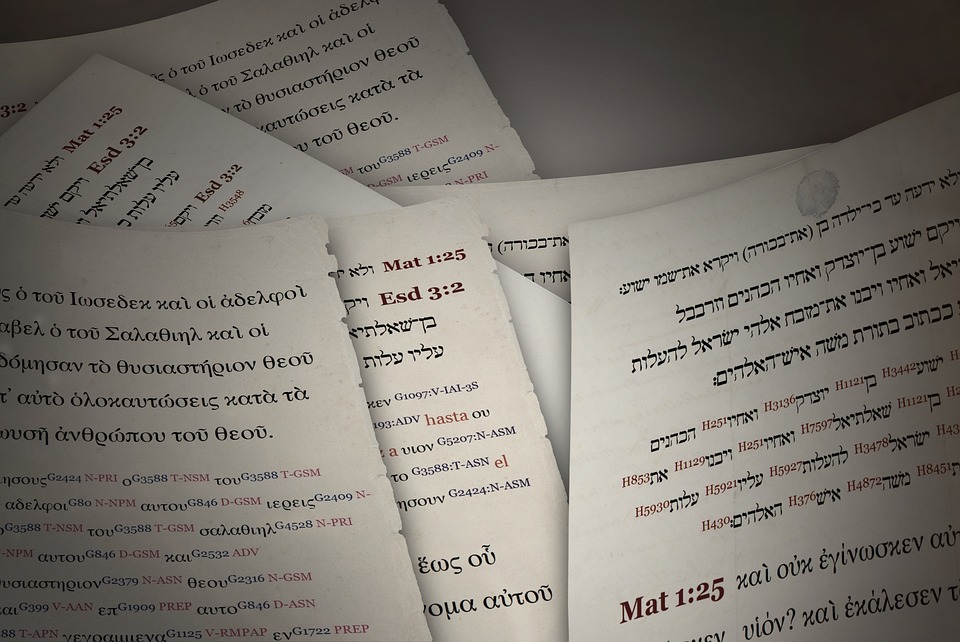 ὁ τοῦ Ιωσεδεκ καὶ οἱ
ὁ τοῦ Σαλαθιηλ καὶ οἱ
τὸ θυσιαστήριον θεοῦ
κατὰ τὰ
τοῦ θεοῦ.
τουG3588 T-GSM
D-GSM ιερειςG2409 N-
N-PRI
3:2
Mat 1:25 ולא ידעה
Esd 3:2 ויקם
בן־שאלתיאל
עליו עלות
Esd 3:2
H3548
ὁ τοῦ Ιωσεδεκ καὶ οἱ ἀδελφοὶ
ὁ τοῦ Σαλαθιηλ καὶ οἱ
τὸ θυσιαστήριον θεοῦ
αὐτὸ ὁλοκαυτώσεις κατὰ τὰ
ἀνθρώπου τοῦ θεοῦ.
G2424 N-PRI οG3588 T-NSM τουG3588 T-GSM
αδελφοιG80 N-NPM αυτουG846 D-GSM ιερειςG2409 N-
G3588 T-NSM τουG3588 T-GSM σαλαθιηλG4528 N-PRI
-NPM αυτουG846 D-GSM καιG2532 ADV
G2379 N-ASN θεουG2316 N-GSM
G399 V-AAN επG1909 PREP αυτοG846 D-ASN
T-APN γεγραμμεναG1125 V-RMPAP ενG1722 PREP
Mat 1:25 ולא
Esd 3:2
בן־שאלתיא
עליו עלות
G1097:V-IAI-3S
193:ADV hasta ου
a υιον G5207:N-ASM
το G3588:T-ASN el
G2424:N-ASM
ἕως οὗ
αὐτοῦ
את־בכורה)
ידעה עד כי־ילדה בן (את־בכורה) ויקרא את־שמו ישוע׃
ויקם ישוע בן־יוצדק ואחיו הכהנים וזרבבל
ואחיו ויבנו את־מזבח אלהי ישראל להעלות
ככתוב בתורת משה איש־האלהים׃
ישועH3442 בןH1121 יוצדקH3136 ואחיוH251 הכהנים
בןH1121 שאלתיאלH7597 ואחיוH251 ויבנוH1129 אתH853
ישראלH3478 להעלותH5927 עליוH5921 עלותH5930
H8451 משהH4872 אישH376 האלהים׃H430
Mat 1:25 καὶ οὐκ ἐγίνωσκεν
υἱόν? καὶ ἐκάλεσεν